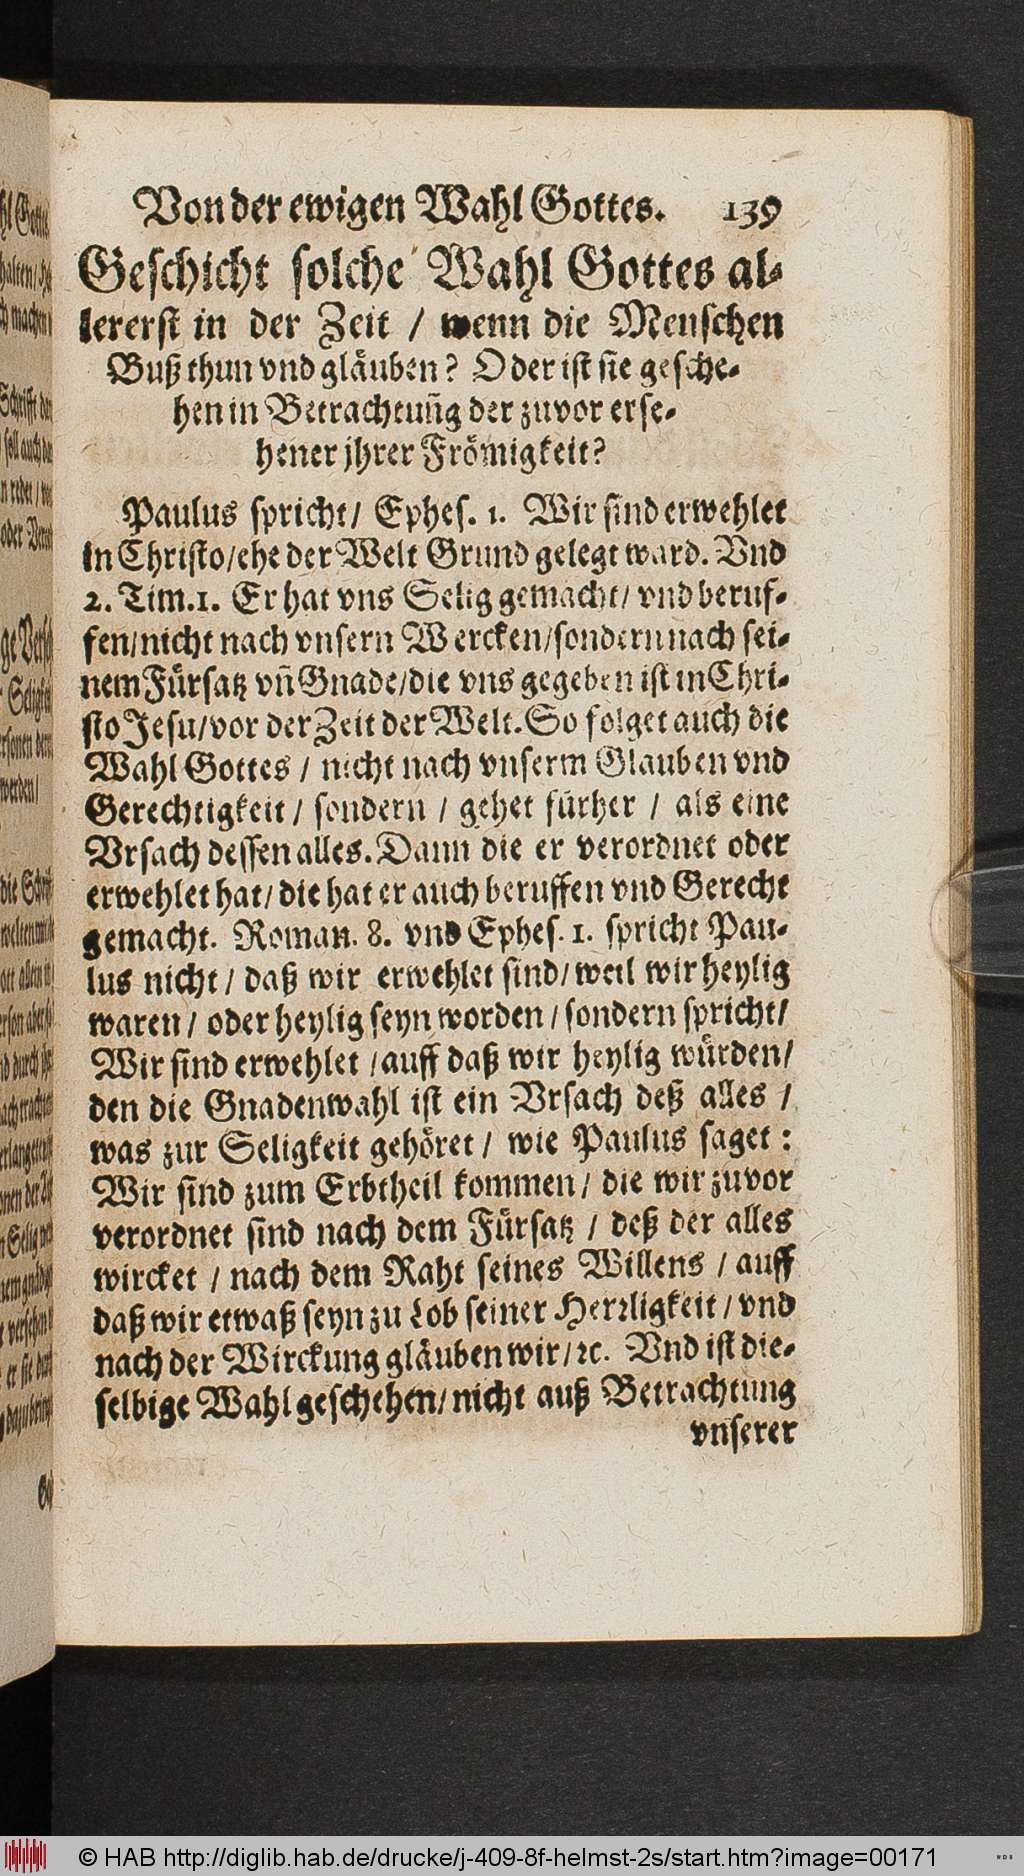 Von der ewigen Wahl Gottes. 139
Geschicht solche Wahl Gottes al-
lererst in der Zeit / wenn die Menschen
Buß thun vnd gläuben? Oder ist sie gesche-
hen in Betrachtuñg der zuvor erse-
hener jhrer Frömigkeit?
Paulus spricht / Ephes. 1. Wir sind erwehlet
in Christo / ehe der Welt Grund gelegt ward. Vnd
2. Tim. 1. Er hat vns Selig gemacht / vnd beruf-
fen / nicht nach vnsern Wercken / sondern nach sei-
nem Fürsatz vñ Gnade / die vns gegeben ist in Chri-
sto Jesu / vor der Zeit der Welt. So folget auch die
Wahl Gottes / nicht nach vnserm Glauben vnd
Gerechtigkeit / sondern / gehet fürher / als eine
Vrsach dessen alles. Dann die er verordnet oder
erwehlet hat / die hat er auch beruffen vnd Gerecht
gemacht. Roman. 8. vnd Ephes. 1. spricht Pau-
lus nicht / daß wir erwehlet sind / weil wir heylig
waren / oder heylig seyn worden / sondern spricht /
Wir sind erwehlet / auff daß wir heylig würden /
den die Gnadenwahl ist ein Vrsach deß alles /
was zur Seligkeit gehöret / wie Paulus saget :
Wir sind zum Erbtheil kommen / die wir zuvor
verordnet sind nach dem Fürsatz / deß der alles
wircket / nach dem Raht seines Willens / auff
daß wir etwaß seyn zu Lob seiner Herrligkeit / vnd
nach der Wirckung gläuben wir / ꝛc. Vnd ist die-
selbige Wahl geschehen / nicht auß Betrachtung
vnserer
© HAB http://diglib.hab.de/drucke/j-409-8f-helmst-2s/start.htm?image=00171